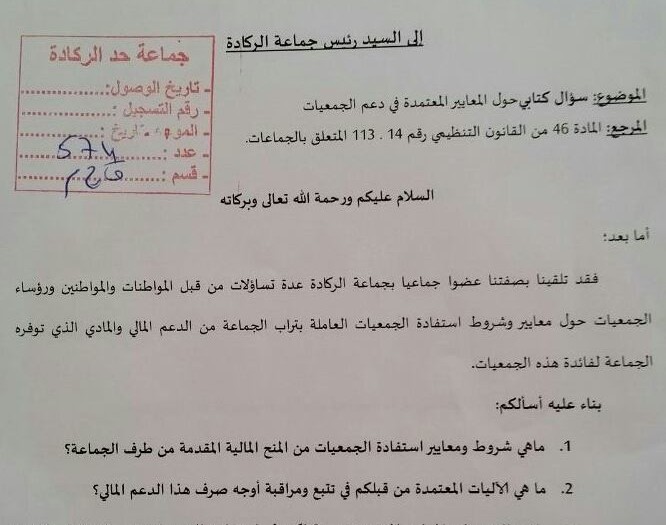 إلى السيد رئيس جماعة الركادة
جماعة حد الركادة
- تاريخ الوصول:
- رقم التسجيل :
- عدد :
- قسم :
الموضوع: سؤال كتابي حول المعايير المعتمدة في دعم الجمعيات
المرجع: المادة 46 من القانون التنظيمي رقم 14 . 113 المتعلق بالجماعات.
السلام عليكم ورحمة الله تعالى وبركاته
أما بعد؛
فقد تلقينا بصفتنا عضوا جماعيا بجماعة الركادة عدة تساؤلات من قبل المواطنات والمواطنين ورؤساء
الجمعيات حول معايير وشروط استفادة الجمعيات العاملة بتراب الجماعة من الدعم المالي والمادي الذي توفره
الجماعة لفائدة هذه الجمعيات.
بناء عليه أسألكم:
1. ماهي شروط ومعايير استفادة الجمعيات من المنح المالية المقدمة من طرف الجماعة؟
2. ما هي الآليات المعتمدة من قبلكم في تتبع ومراقبة أوجه صرف هذا الدعم المالي؟